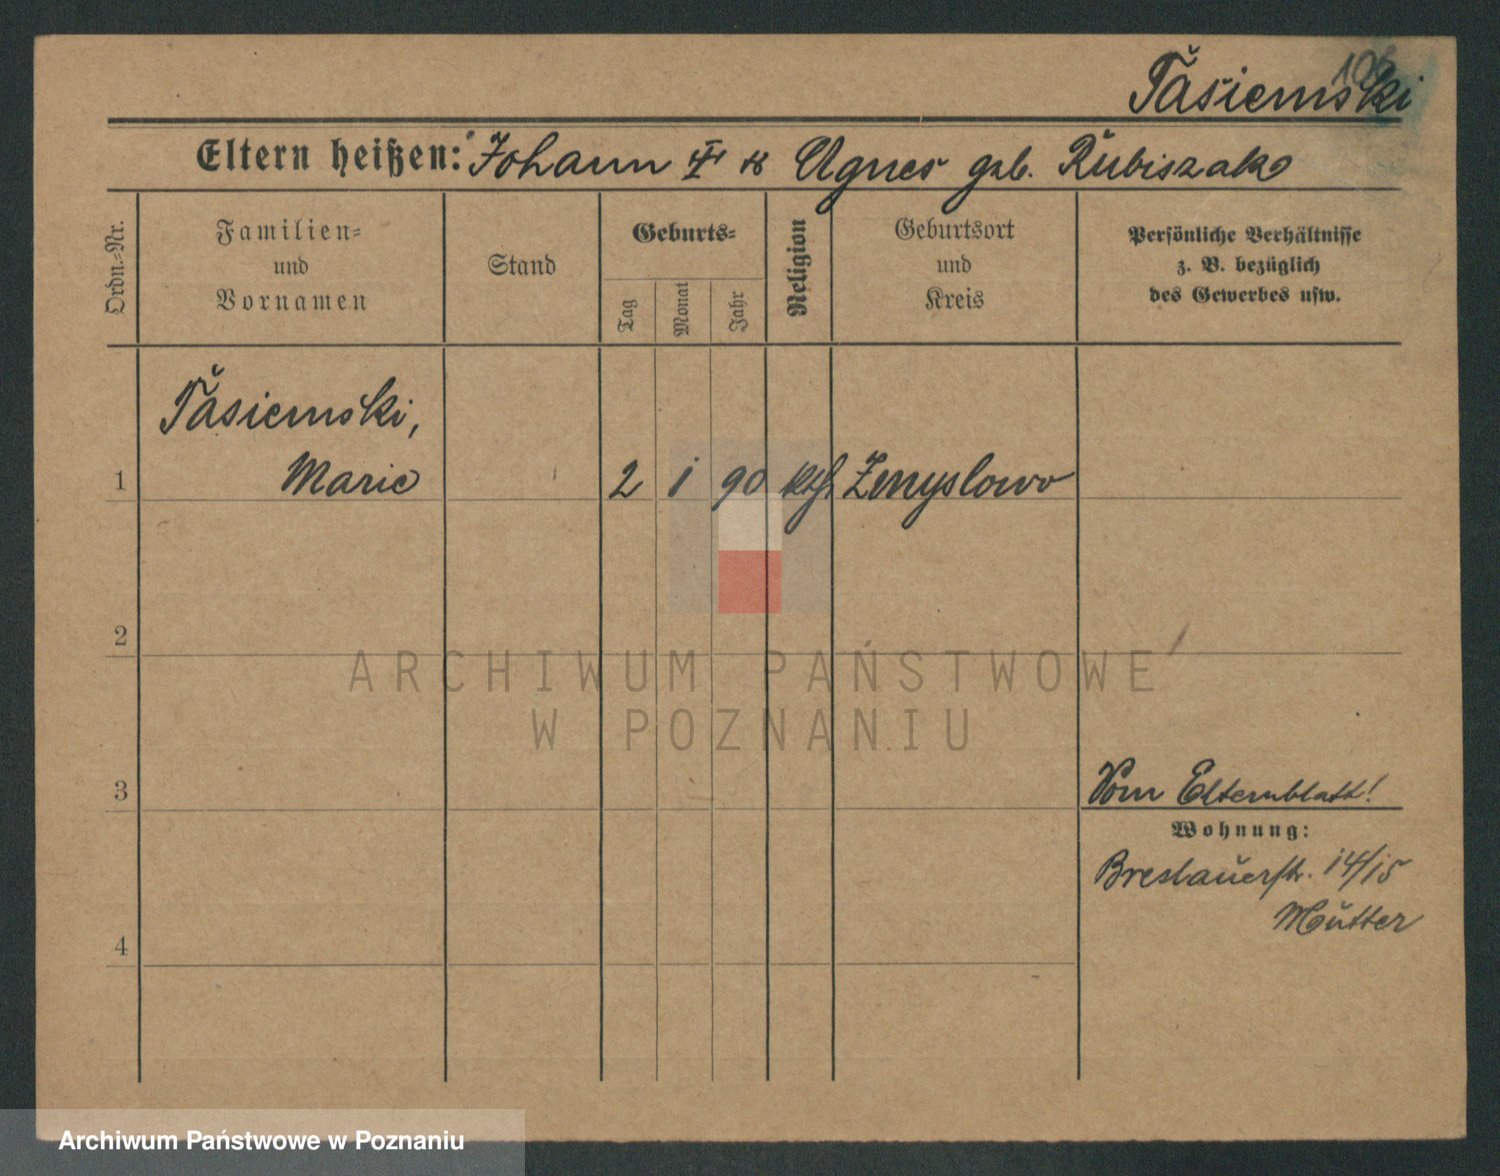 106
Tasiemski
Eltern heißen: Johann ✝ u Agnes geb. Rubiszak
Ordn.-Nr.
Familien-
und
Vornamen
Stand
Geburts-
Tag
Monat
Jahr
Religion
Geburtsort
und
Kreis
Persönliche Verhältnisse
z. B. bezüglich
des Gewerbes usw.
Tasiemski,
1 Marie 2 1 90 kth Zemyslowo
2
ARCHIWUM PAŃSTWOWE
W POZNANIU
3 Vom Elternblatt!
Wohnung:
Breslauerstr. 14/15
Mutter
4
Archiwum Państwowe w Poznaniu